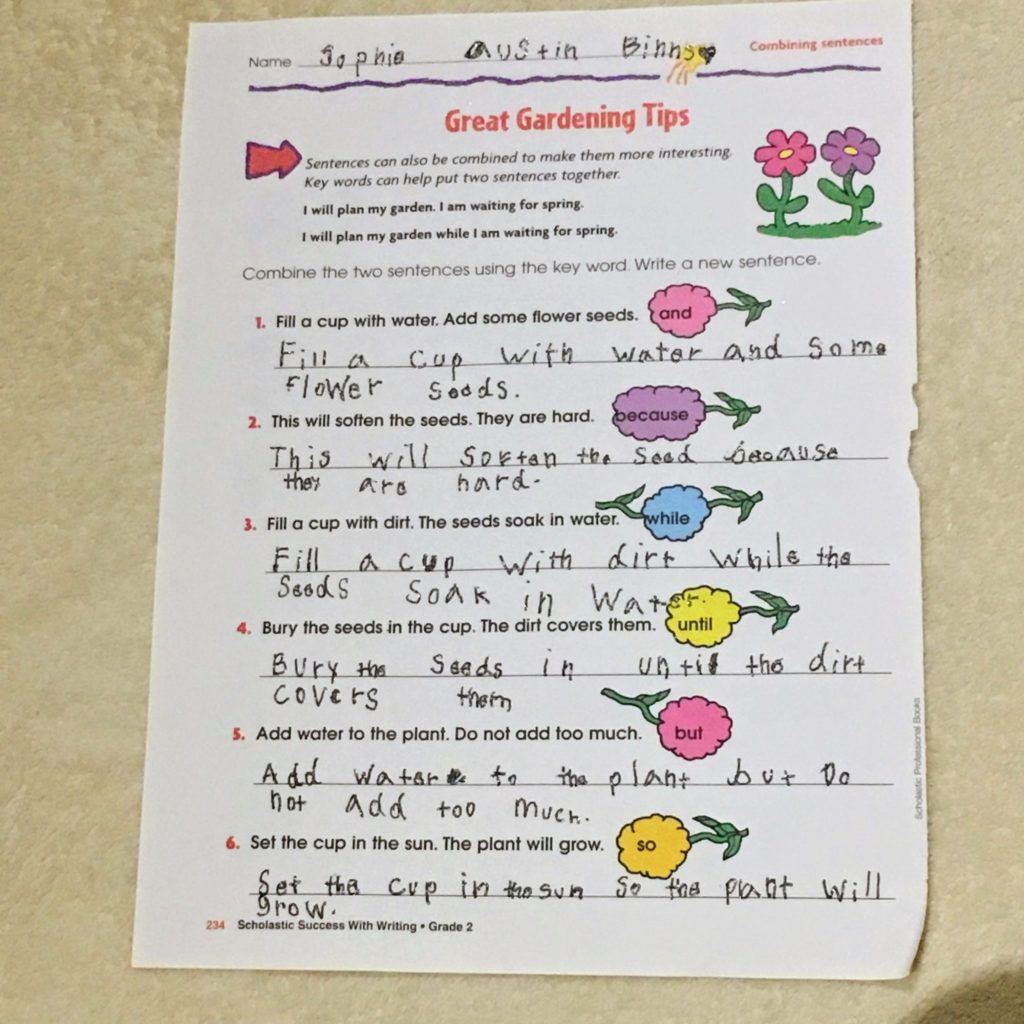 Name Sophie Austin Binns
Combining sentences
Great Gardening Tips
Sentences can also be combined to make them more interesting.
Key words can help put two sentences together.
I will plan my garden. I am waiting for spring.
I will plan my garden while I am waiting for spring.
Combine the two sentences using the key word. Write a new sentence.
1. Fill a cup with water. Add some flower seeds. and
Fill a cup with water and some
flower seeds.
2. This will soften the seeds. They are hard. because
This will soften the seed because
they are hard.
3. Fill a cup with dirt. The seeds soak in water. while
Fill a cup with dirt while the
seeds soak in water.
4. Bury the seeds in the cup. The dirt covers them. until
Bury the seeds in until the dirt
covers them
5. Add water to the plant. Do not add too much. but
Add water to the plant but Do
not add too much.
6. Set the cup in the sun. The plant will grow. so
Set the cup in the sun so the plant will
grow.
234 Scholastic Success With Writing • Grade 2
Scholastic Professional Books